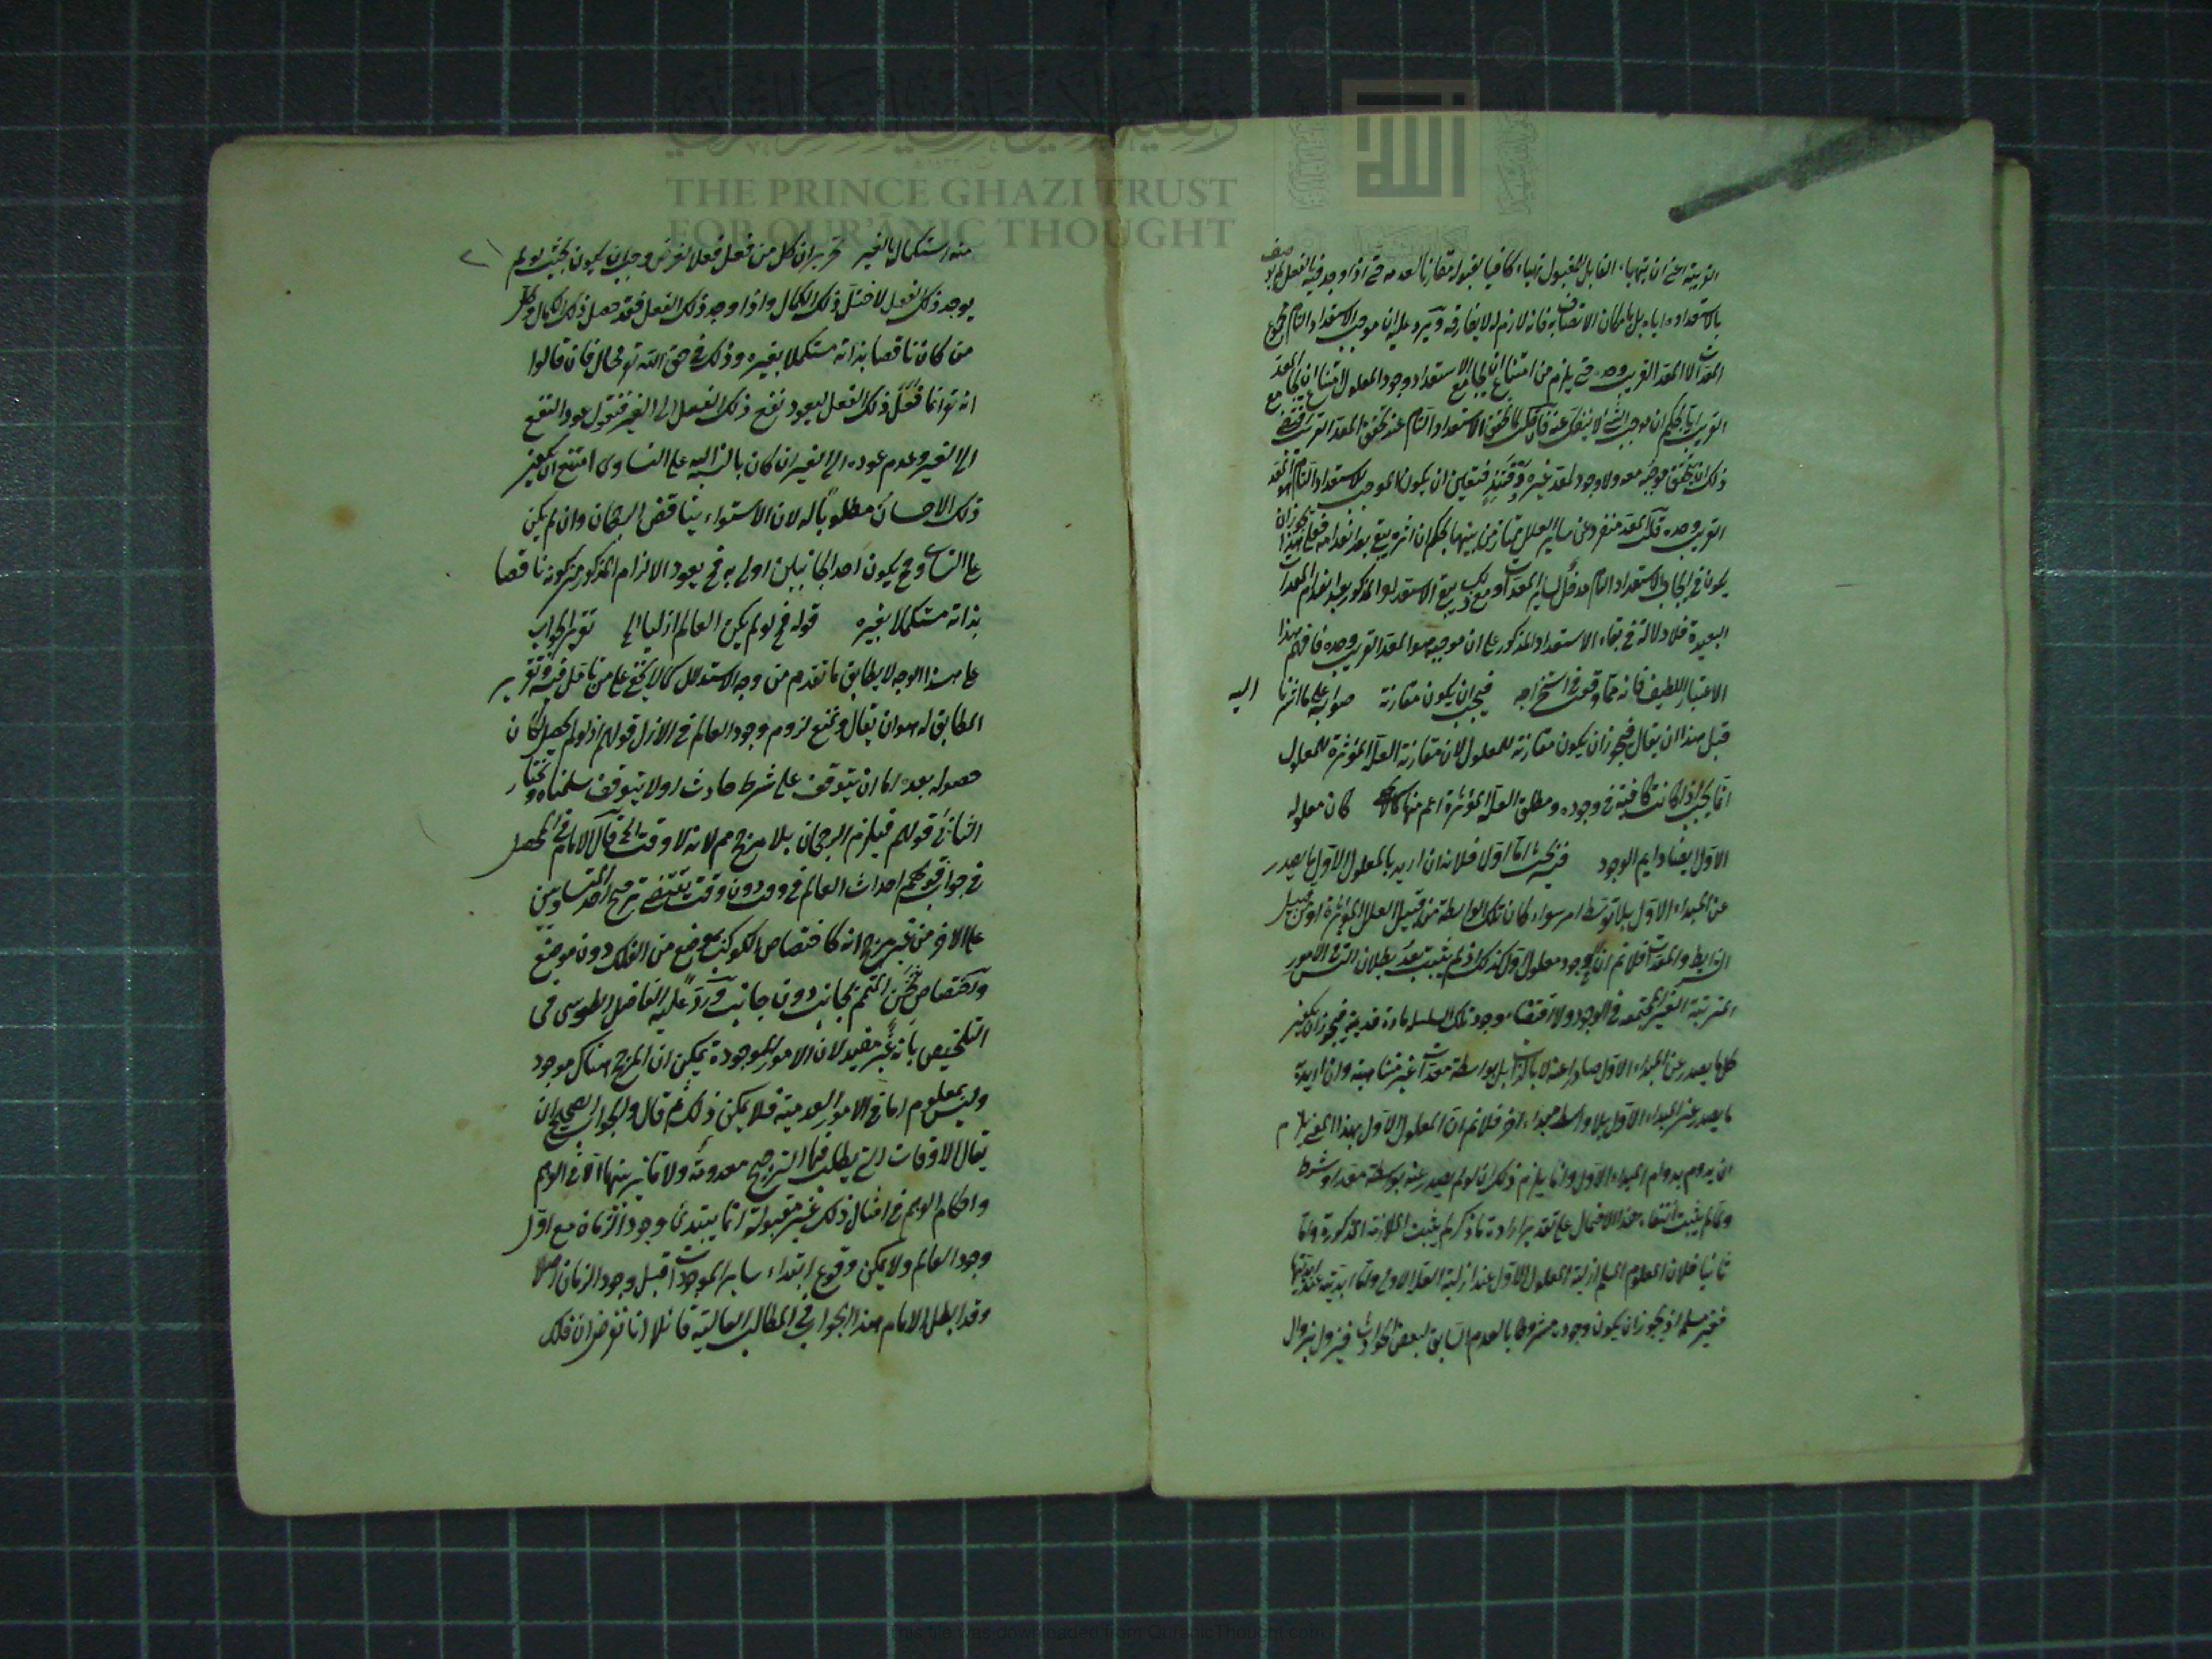 THE PRINCE GHAZI TRUST
FOR QUR'ĀNIC THOUGHT
القريبة اعنى ان يتهيأ القابل للمقبول تهيأ كافيا لقبوله مقارنا لعدمه حتى اذا وجد فيه بالفعل لم يوصف
باستعداده اياه بل بامكان الاتصاف به فانه لازم له لا يفارقه ويرد عليه ان موجب الاستعداد التام مجموع
المعدات لا المعد القريب وحده حتى يلزم من امتناع ان يجامع الاستعداد وجود المعلول امتناع ان يجامع المعد
القريب
ذلك ان يتحقق موجبه معه ولا وجود لمعد غيره وقتئذ فتعين ان يكون الموجب للاستعداد التام هو المعد
القريب وحده قلت المعد منفرد عن ساير العلل ممتاز من بينها بحكم ان اثره يبقى بعد انعدامه فعلى هذا يجوز ان
يكون فى ايجاب الاستعداد التام مدخل لساير المعدات ومع ذلك يبقى الاستعداد المذكور بعد انعدام المعدات
البعيدة فلا دلالة فى بقاء الاستعداد المذكور على ان موجبه هو المعد القريب وحده فافهم هذا
الاعتبار اللطيف فانه مما وقعت فى استخراجه فيجب ان يكون مقارنة صوابه على ما اشرنا اليه
قبل هذا ان يقال فيجوز ان يكون مقارنة للمعلول لان مقارنة العلة المؤثرة للمعلول
انما يجب اذا كانت كافية فى وجوده ومطلق العلة المؤثرة اعم منها كان معلوله
الاول ايضا دايم الوجود فيه بحث اما اولا فلانه ان اريد بالمعلول الاول ما يصدر
عن المبداء الاول بلا توسط امر سواء كان تلك الواسطة من قبيل العلل المؤثرة او من قبيل
الشرايط والمعدات فلا نم ان وجود معلول اول كذلك اذ لم يثبت بعد بطلان التس فى الامور
المترتبة الغير المجتمعة فى الوجود ولا اقتضاء وجود تلك السلسلة مادة قديمة فيجوز ان يكون
كل ما يصدر عن المبداء الاول صادرا عنه لا بالذات بل بواسطة معدات غير متناهية وان اريد
ما يصدر عن المبداء الاول بلا واسطة مبداء آخر فلا نم ان المعلول الاول بهذا المعنى يلزم
ان يدوم بدوام المبداء الاول وانما يلزم ذلك ان لو لم يصدر عنه بواسطة معد او شرط
وما لم يثبت انتفاء هذا الاحتمال على تقدير ارادة ما ذكر لم يثبت الملازمة المذكورة واما
ثانيا فلان المعلوم المسلم ازلية المعلول الاول عند ازلية العلة الاولى واما ابديته عند ابديتها
فغير مسلم اذ يجوز ان يكون وجوده مشروطا بالعدم السابق لبعض الحوادث فيزول بزوال
منه استكمال بالغير تحريره ان كل من فعل فعلا لغرض وجب ان يكون بحيث لو لم
يوجد ذلك الفعل لاختل ذلك الكمال واذا وجد ذلك الفعل فقد حصل ذلك الكمال وكل
من كان ناقصا بذاته مستكملا بغيره وذلك فى حق الله تع محال فان قالوا
انه تع انما فعل ذلك الفعل ليعود نفع ذلك الفعل الى الغير فنقول عود النفع
الى الغير وعدم عوده الى الغير ان كان بالنسبة اليه على التساوى امتنع ان يكون
ذلك الاحسان مطلوبا له لان الاستواء يناقض الرجحان وان لم يكن
على التساوى فح يكون احد الجانبين اولى به فح يعود الالزام المذكور من كونه ناقصا
بذاته مستكملا بغيره قوله فح لو لم يكن العالم ازليا الخ تقرير الجواب
على هذا الوجه لا يطابق ما تقدم من وجه الاستدلال كما لا يخفى على من تأمل فيه وتقرير
المطابق له هو ان يقال ونمنع لزوم وجود العالم فى الازل قولهم اذ لو لم يحصل لكان
حصوله بعده اما ان يتوقف على شرط حادث او لا يتوقف سلمناه ونختار
الثانى قولهم فيلزم الرجحان بلا مرجح مم لانه لا وقت الخ قال الامام فى المحصل
فى جواب قولهم احداث العالم فى وقت دون وقت يقتضى ترجيح احد المتساويين
على الآخر من غير مرجح انه كاختصاص الكوكب بموضع من الفلك دون موضع
واختصاص ثخن المتمم بجانب دون جانب ورد عليه الفاضل الطوسى فى
التلخيص بانه غير مفيد لان الامور الموجودة يمكن ان المرجح هناك موجود
وليس بمعلوم اما فى الامور العدمية فلا يمكن ذلك ثم قال والجواب الصحيح ان
يقال الاوقات التى يطلب فيها الترجيح معدومة ولا تمايز بينها الا فى الوهم
واحكام الوهم فى امثال ذلك غير مقبولة انما يبتدئ وجود الزمان مع اول
وجود العالم ولا يمكن وقوع ابتداء ساير الموجودات قبل وجود الزمان اصلا
وقد ابطل الامام هذا الجواب فى المطالب العالية قائلا انا نفرض ان فلك
This file was downloaded from QuranicThought.com